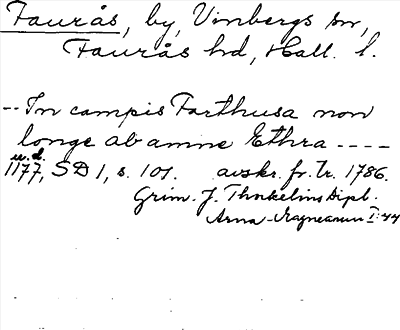 Faurås, by, Vinbergs sn,
Faurås hd, Hall. l.
-- In campis Farthusa non
longe ab amne Ethra ----
u. d.
1177, SD 1, s. 101. avskr. fr. tr. 1786.
Grim. J. Thorkelins Dipl.
Arna-Magneanum I: 44